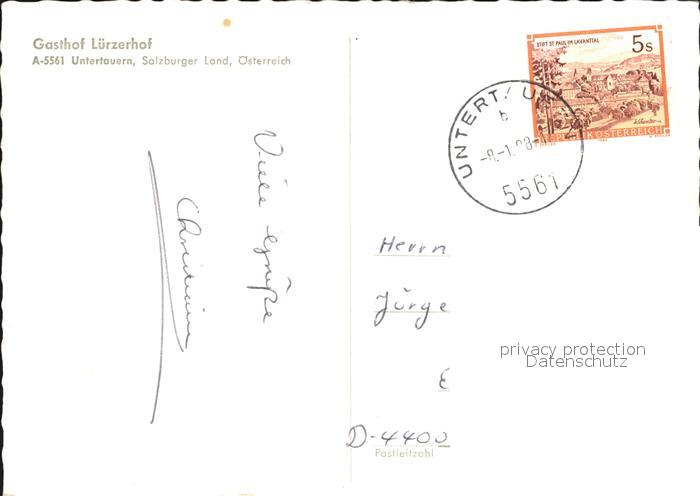 Gasthof Lürzerhof
A-5561 Untertauern, Salzburger Land, Österreich
STIFT ST. PAUL IM LAVANTTAL
5s
REPUBLIK ÖSTERREICH
UNTERT
b
-8.-1.
5561
Viele Grüße
Christiane
Herrn
Jürge
E
D-4400
Postleitzahl
privacy protection
Datenschutz